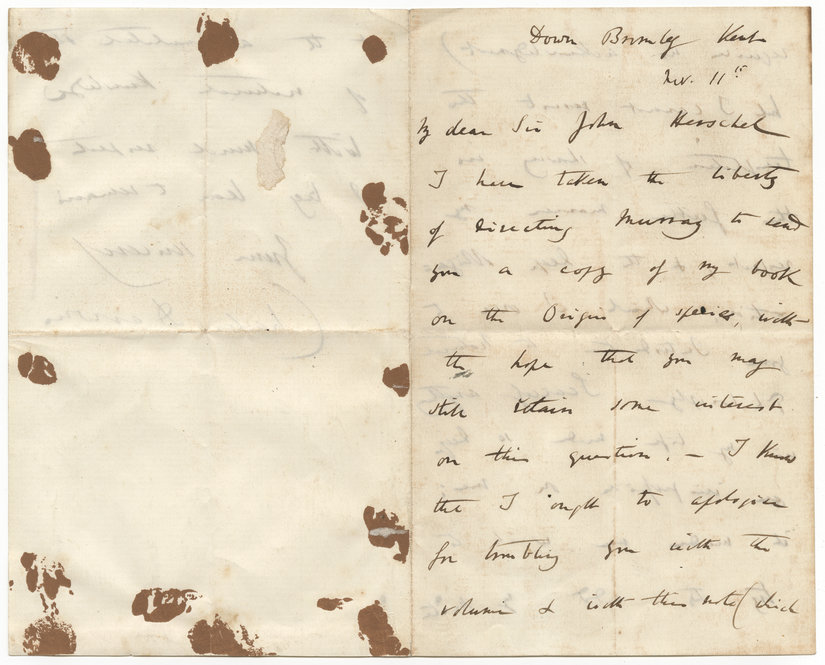 Down Bromley Kent
Nov. 11th
My dear Sir John Herschel
I have taken the liberty
of directing Murray to send
you a copy of my book
on the Origin of species, with
the hope that you may
still retain some interest
on this question. — I know
that I ought to apologise
for troubling you with the
volume & with this note (which